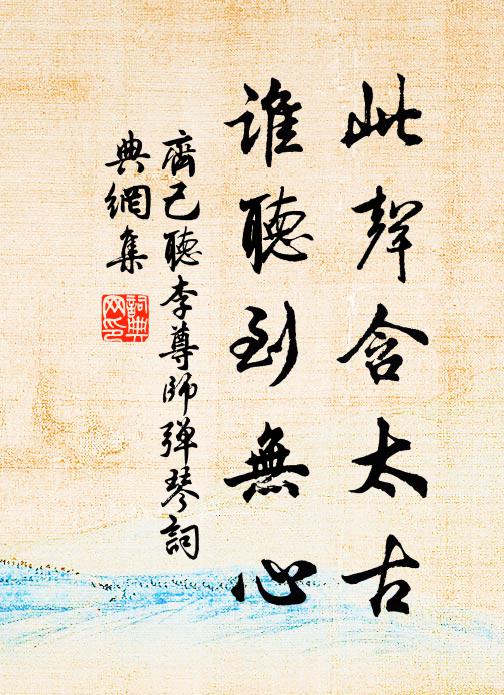 此聲含太古
誰聽到無心
齊己聽李尊師弹琴詞
典網集
詞典
网印